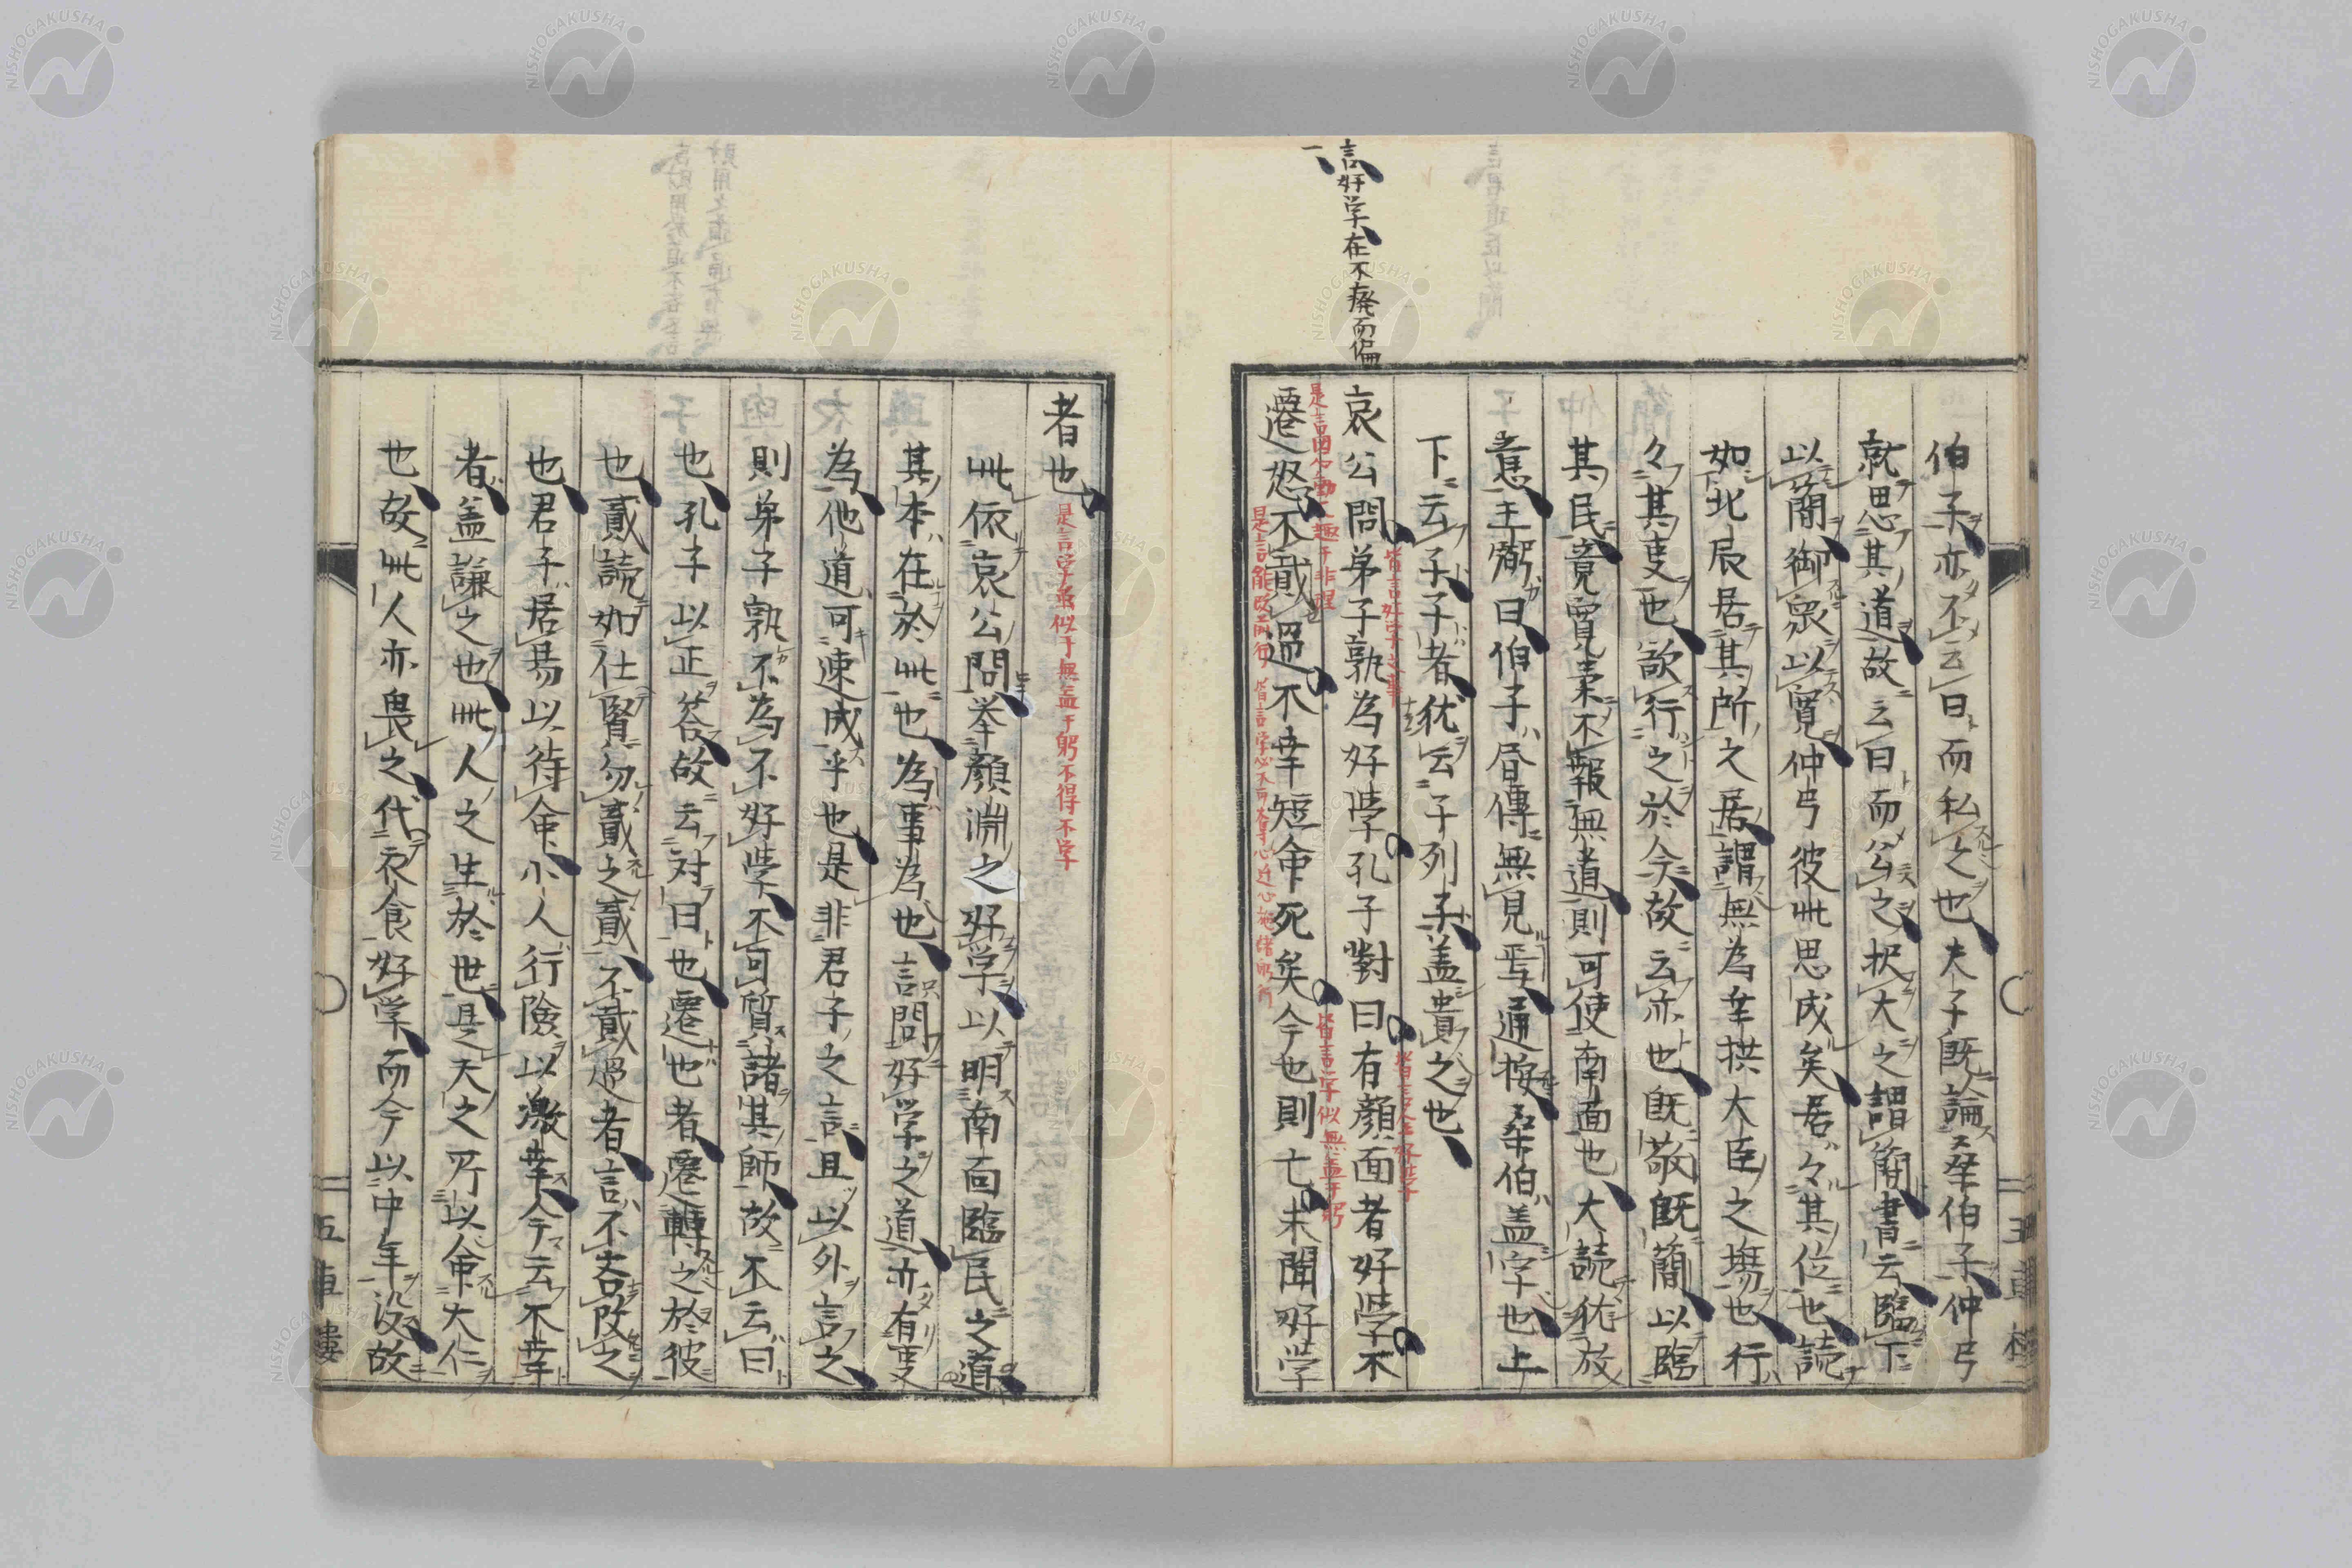 言好学在不廃而偏
一
伯子亦不云曰而私之也夫子既論桑伯子仲弓
就思其道故云曰而公之択大之謂簡書云臨下
以簡御衆以寛仲弓彼此思成矣居々其位也読
如北辰居其所之居謂無為幸拱大臣之場也行
々其叓也欲行之於今故云亦也既敬既簡以臨
其民竟寛柔不報無道則可使南面也大読犹放
意王弼曰伯子昼傳無見焉通按桑伯盖字也上
下云子子者犹云子列子盖貴之也
哀公問弟子孰為好學孔子對曰有顔囬者好學不
皆言好学之事
皆言人全好学
遷怒不貳過不幸短命死矣今也則亡未聞好学
皆言字似無盖于躬
是言能改前行
者也
是言学虽似于無盖于躬不得不学
此依哀公問挙顔淵之好学以明南面臨民之道
其本在於此也為事為也言問好学之道亦有叓
為他道可速成乎也是非君子之言且以外言之
則弟子孰不為不好学不可質諸其師故不云曰
也孔子以正答故云対曰也遷也者遷轉之於彼
也貳読如仕賢勿貳之貳不貳過者言不吝改之
也君子居易以待命小人行険以激幸今云不幸
者盖謙之也此人之生於世是天之所以命大仁
也故此人亦畏之代衣食好学而今以中年没故
五車樓
NISHOGAKUSHA